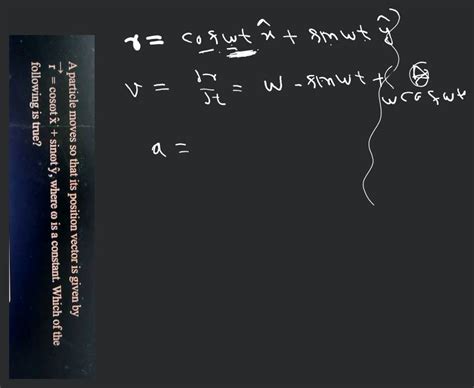 A particle moves so that its position vector is given by
r⃗ = cosωt x̂ + sinωt ŷ, where ω is a constant. Which of the
following is true?
r = coswt x̂ + sinwt ŷ
v = dr/dt = w - sinwt + w coswt
a =